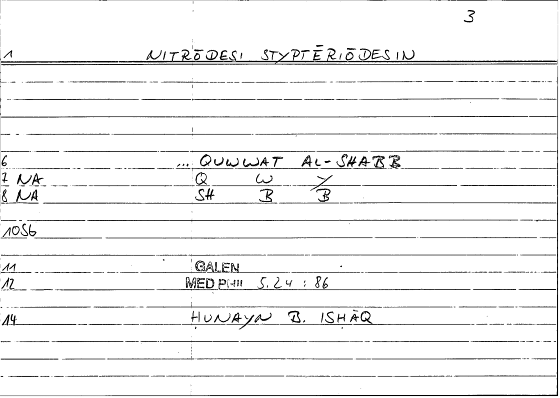 3
1 NITRŌDESI STYPTĒRIŌDESIN
6 ... QUWWAT AL-SHABB
7 NA Q W Y
8 NA SH B B
1056
11 GALEN
12 MED PHIL 5.24 : 86
14 HUNAYN B. ISHĀQ